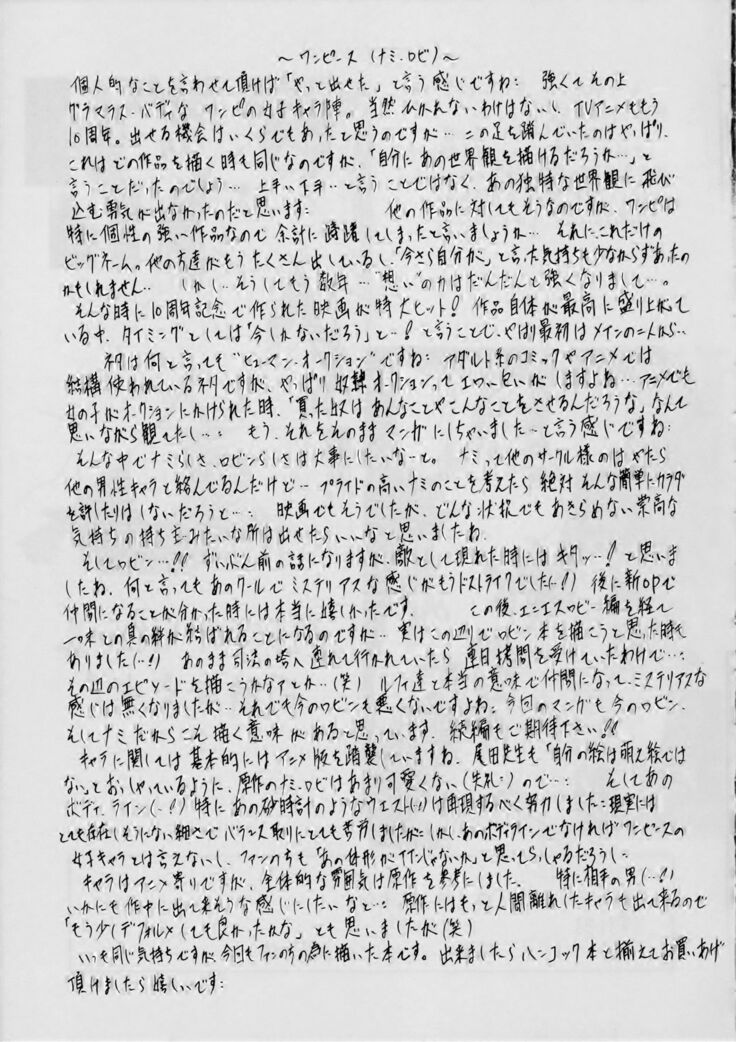 ～ワンピース（ナミ、ロビ）～
個人的なことを言わせて頂けば「やっと出せた」と言う感じですね： 強くてその上
グラマラス・バディな ワンピの女子キャラ陣。当然ひかれないわけはないし、TVアニメももう
10周年。出せる機会はいくらでもあったと思うのですが… この足を踏んでいたのはやっぱり、
これはどの作品を描く時も同じなのですが、「自分にあの世界観を描けるだろうか…」と
言うことだったのでしょう… 上手い下手…と言うことではなく、あの独特な世界観に飛び
込む勇気が出なかったのだと思います： 他の作品に対してもそうなのですが、ワンピは
特に個性の強い作品なので 余計に躊躇してしまったと言いましょうか… それにこれだけの
ビッグネーム。他の方達がもうたくさん出しているし、「今さら自分が」と言った気持ちも少なからずあったの
かもしれません… しかし…そうしてもう数年…“想い”の力はだんだんと強くなりまして…。
そんな時に10周年記念で作られた映画が特大ヒット！ 作品自体が最高に盛り上がって
いる中、タイミングとしては「今しかないだろう」と…！と言うことで、やはり最初はメインの二人から…
ネタは何と言っても“ヒューマン・オークション”ですね： アダルト系のコミックやアニメでは
結構使われているネタですが、やっぱり 奴隷オークションって エロいせいが しますよね…アニメでも
女の子がオークションにかけられた時、「買った奴は あんなことやこんなことをさせるんだろうな」なんて
思いながら観てたし…： もう、それをそのまま マンガにしちゃいました…と言う感じですね：
そんな中でナミらしさ、ロビンらしさは大事にしたいなーと。 ナミって他のサークル様のはやたら
他の男性キャラと絡んでるんだけど… プライドの高いナミのことを考えたら 絶対そんな簡単にカラダ
を許したりはしないだろうと…： 映画でもそうでしたが、どんな状況でもあきらめない崇高な
気持ちの持ち主みたいな所は出せたらいいなと思いましたね。
そしてロビン…!! ずいぶん前の話になりますが、敵として現れた時には キタッ…！と思いま
したね。何と言ってもあのクールでミステリアスな感じがもうドストライクでした(…!) 後に新OPで
仲間になることが分かった時には本当に嬉しかったです。 この後、エニエスロビー編を経て
一味との真の絆が結ばれることになるのですが… 実はこの辺りでロビン本を描こうと思った時も
ありました(…!) あのまま司法の塔へ連れて行かれていたら 連日拷問を受けていたわけで…：
その辺のエピソードを描こうかなァとか…（笑） ルフィ達と本当の意味で仲間になって、ミステリアスな
感じは無くなりましたが…それでも今のロビンも悪くないですよね：今回のマンガも今のロビン、
そしてナミだからこそ描く意味があると思っています。続編もご期待下さい!!
キャラに関しては基本的にはアニメ版を踏襲していますね。尾田先生も「自分の絵は萌え絵では
ない」とおっしゃっているように、原作のナミ、ロビはあまり可愛くない（失礼：）ので…： そしてあの
ボディ・ライン(…!!) 特にあの砂時計のようなウエスト(…)は再現するべく努力しました：現実には
とても存在しそうにない細さで バランス取りにとても苦労しましたが：しかし、あのボディラインでなければワンピースの
女子キャラとは言えないし、ファンの方も「あの体形がイイんじゃないか」と思ってらっしゃるだろうし：
キャラはアニメ寄りですが、全体的な雰囲気は原作を参考にしました。 特に相手の男(…!!)
いかにも作中に出て来そうな感じにしたいなと…： 原作にはもっと人間離れしたキャラも出て来るので
「もう少しデフォルメしても良かったかな」とも思いましたが（笑）
いつも同じ気持ちですが、今回もファンの方の為に描いた本です。出来ましたらハンコック本と揃えてお買いあげ
頂けましたら嬉しいです：